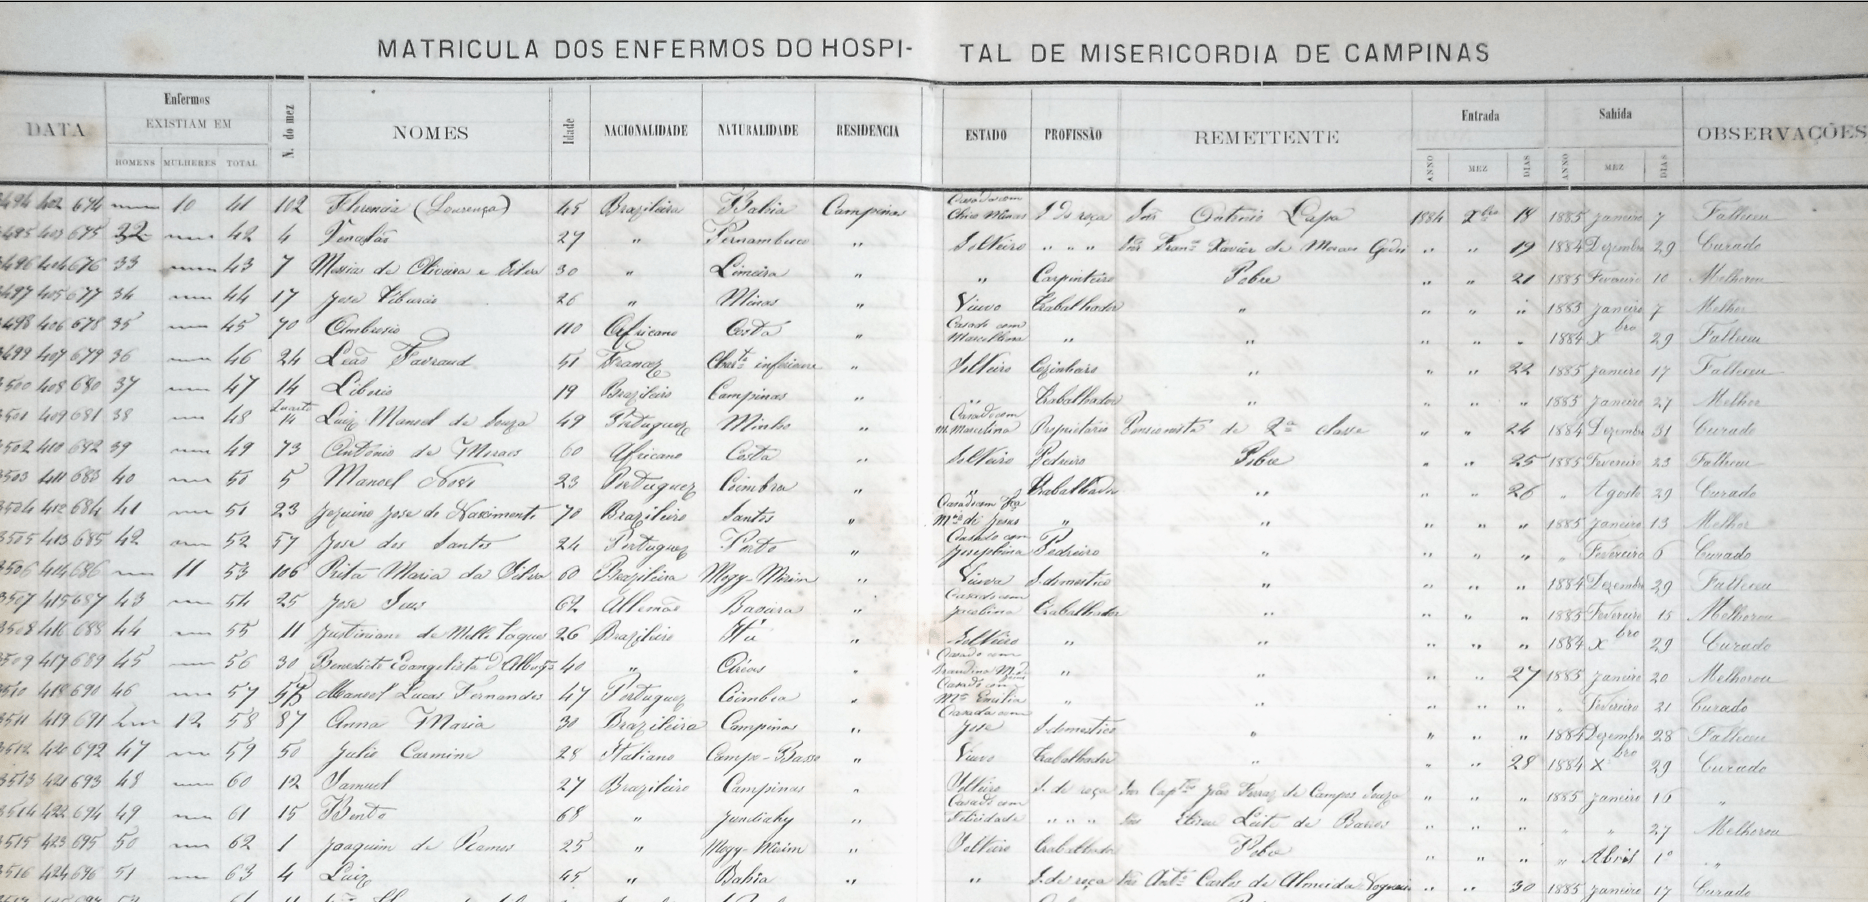 MATRICULA DOS ENFERMOS DO HOSPI- TAL DE MISERICORDIA DE CAMPINAS
DATA Enfermos EXISTIAM EM HOMENS MULHERES TOTAL N. do mez NOMES Idade NACIONALIDADE NATURALIDADE RESIDENCIA ESTADO PROFISSÃO REMETTENTE Entrada ANNO MEZ DIAS Sahida ANNO MEZ DIAS OBSERVAÇÕES
3494 402 674 10 41 102 Florencia (Lourença) 45 Brazileira Bahia Campinas Casada com S. de roça Snr Antonio Lapa 1884 Xbro 1885 Janeiro 7 Falleceu
3495 403 675 42 4 27 " Pernambuco " Solteiro " " " Snr Franco Xavier de Moraes " " 19 1884 Dezembro 29 Curado
3496 404 676 33 43 7 Messias de Oliveira e Silva 30 " Limeira " " Carpinteiro Pobre " " 21 1885 Fevereiro 10 Melhorou
3497 405 677 34 44 17 Jose Tiburcio 26 " Minas " Viuvo Trabalhador " " " " 1885 Janeiro 7 Melhor
3498 406 678 35 45 70 Ambrosio 110 Africano Costa " Casado com Marcellina " " " " " 1884 Xbro 29 Falleceu
3499 407 679 36 46 24 Leão Favraud 51 Francez inferieure " Solteiro Cozinheiro " " " 22 1885 Janeiro 17 Falleceu
3500 408 680 37 47 14 Liborio 19 Brazileiro Campinas " " Trabalhador " " " " 1885 Janeiro 27 Melhor
3501 409 681 38 48 Quarto Luiz Manoel de Souza 49 Portuguez Minho " Casado com M. Marcelina Proprietario Pensionista de 2ª classe " " 24 1884 Dezembro 31 Curado
3502 410 682 39 49 73 Antonio de Moraes 60 Africano Costa " Solteiro Pedreiro Pobre " " 25 1885 Fevereiro 23 Falleceu
3503 411 683 40 50 5 Manoel 23 Portuguez Coimbra " " Trabalhador " " " 26 " Agosto 29 Curado
3504 412 684 41 51 23 Jezuino Jose do Nascimento 70 Brazileiro Santos " Casado com Mª de Jesus " " " " " 1885 Janeiro 13 Melhor
3505 413 685 42 52 57 Jose dos Santos 24 Portuguez Porto " Casado com Josephina Pedreiro " " " " " Fevereiro 6 Curado
3506 414 686 11 53 106 Rita Maria da Silva 60 Brazileira Mogy-Mirim " Viuva S. domestico " " " " 1884 Dezembro 29 Falleceu
3507 415 687 43 54 25 Jose 62 Allemão Baviera " Casado com Jacobina Trabalhador " " " " 1885 Fevereiro 15 Melhorou
3508 416 688 44 55 11 Justiniano de Mello Taques 26 Brazileiro Itú " Solteiro " " " " " 1884 Xbro 29 Curado
3509 417 689 45 56 30 Benedicto Evangelista 40 " Arêas " Casado com " " " " 27 1885 Janeiro 20 Melhorou
3510 418 690 46 57 Manoel Lucas Fernandes 47 Portuguez Coimbra " Casado com Mª Emilia " " " " " " Fevereiro 21 Curado
3511 419 691 12 58 87 Anna Maria 30 Brazileira Campinas " Casada com Jose S. domestico " " " " 1884 Dezembro 28 Falleceu
3512 420 692 47 59 50 Julio Carmine 28 Italiano Campo-Basso " Viuvo Trabalhador " " " 28 1884 Xbro 29 Curado
3513 421 693 48 60 12 Samuel 27 Brazileiro Campinas " Solteiro S. de roça Snr Capm João Ferraz de Campos Souza " " " 1885 Janeiro 16 "
3514 422 694 49 61 15 Bento 68 " Jundiahy " Casado com Felicidade " " " Snr Leite de Barros " " " " " 27 Melhorou
3515 423 695 50 62 1 Joaquim de Ramos 25 " Mogy-Mirim " Solteiro Trabalhador Pobre " " " " Abril 1º "
3516 424 696 51 63 4 Luiz 45 " Bahia " " S. de roça Snr Antº Carlos de Almeida " " 30 1885 Janeiro 17 Curado